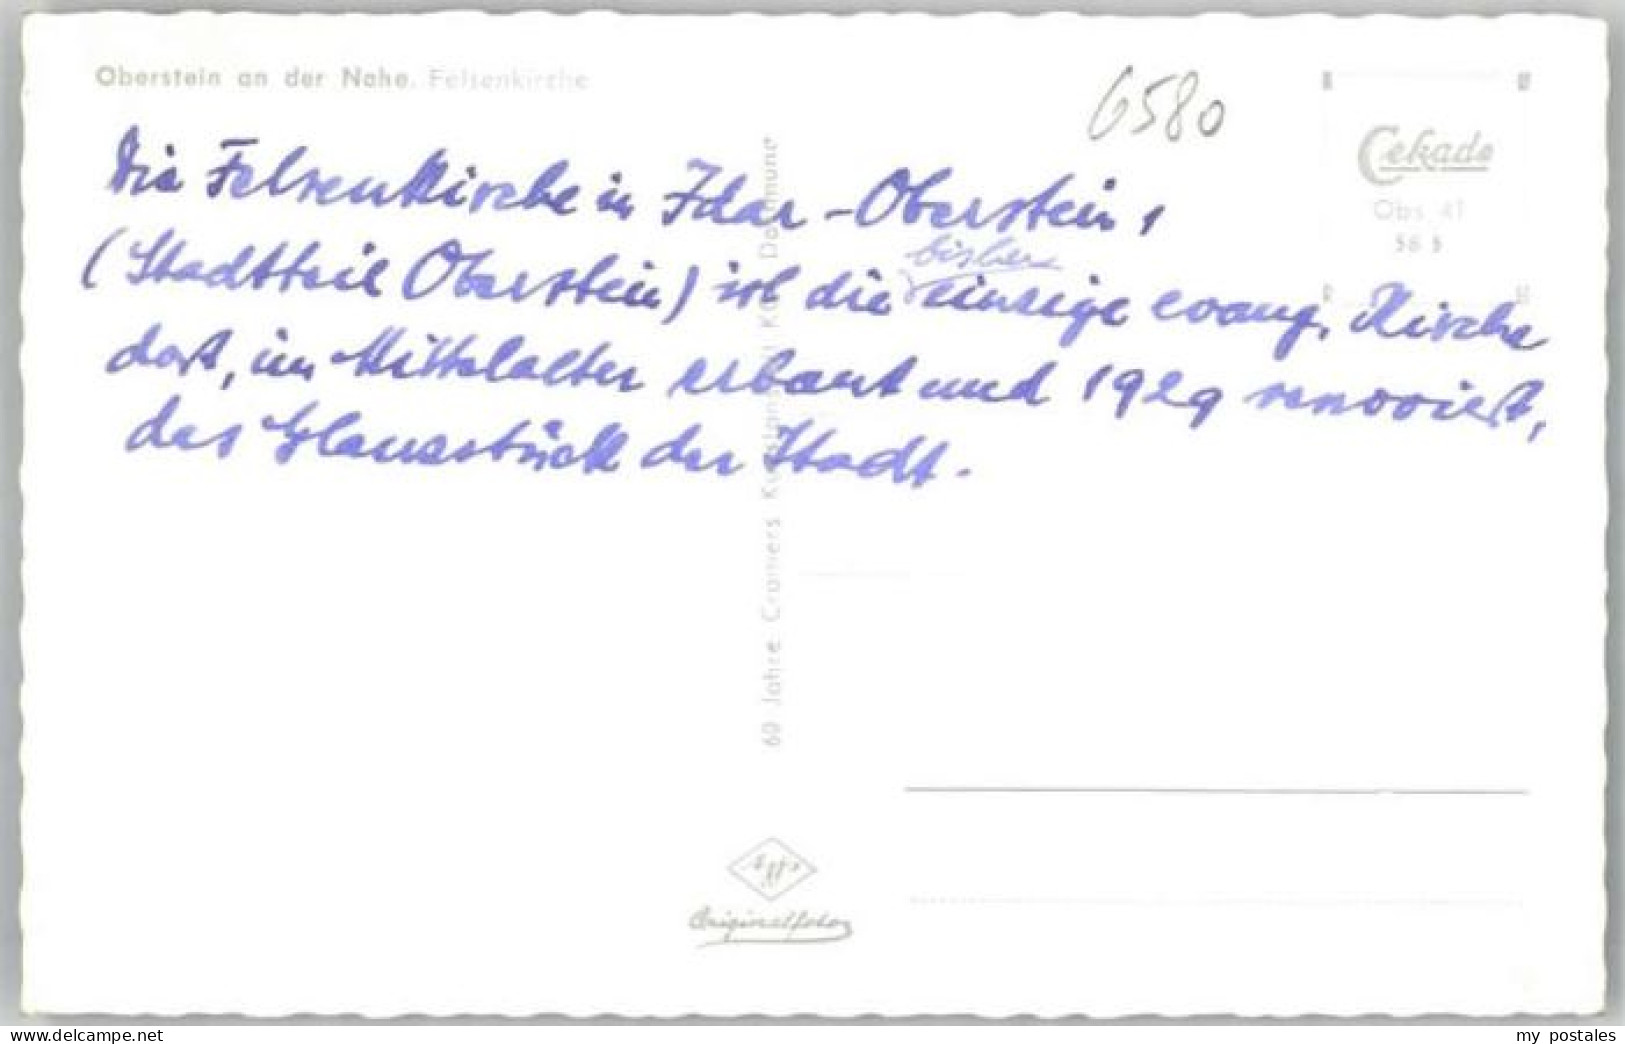 Oberstein an der Nahe. Felsenkirche
6580
Cekade
Obs. 41
Die Felsenkirche in Idar-Oberstein,
(Stadtteil Oberstein) ist die bisher einzige evang. Kirche
dort, im Mittelalter erbaut und 1929 renoviert,
das Glanzstück der Stadt.
60 Jahre Cramers Kunstanstalt KG Dortmund
Agfa
Originalfoto
www.delcampe.net
my_postales